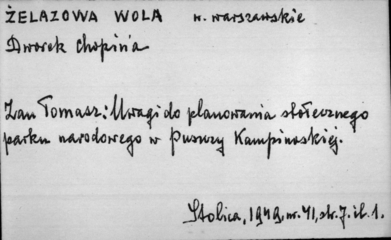 ŻELAZOWA WOLA w. warszawskie
Dworek Chopina
Zan Tomasz: Uwagi do planowania stołecznego
parku narodowego w Puszczy Kampinoskiej.
Stolica, 1949, nr. 41, str. 7. il. 1.